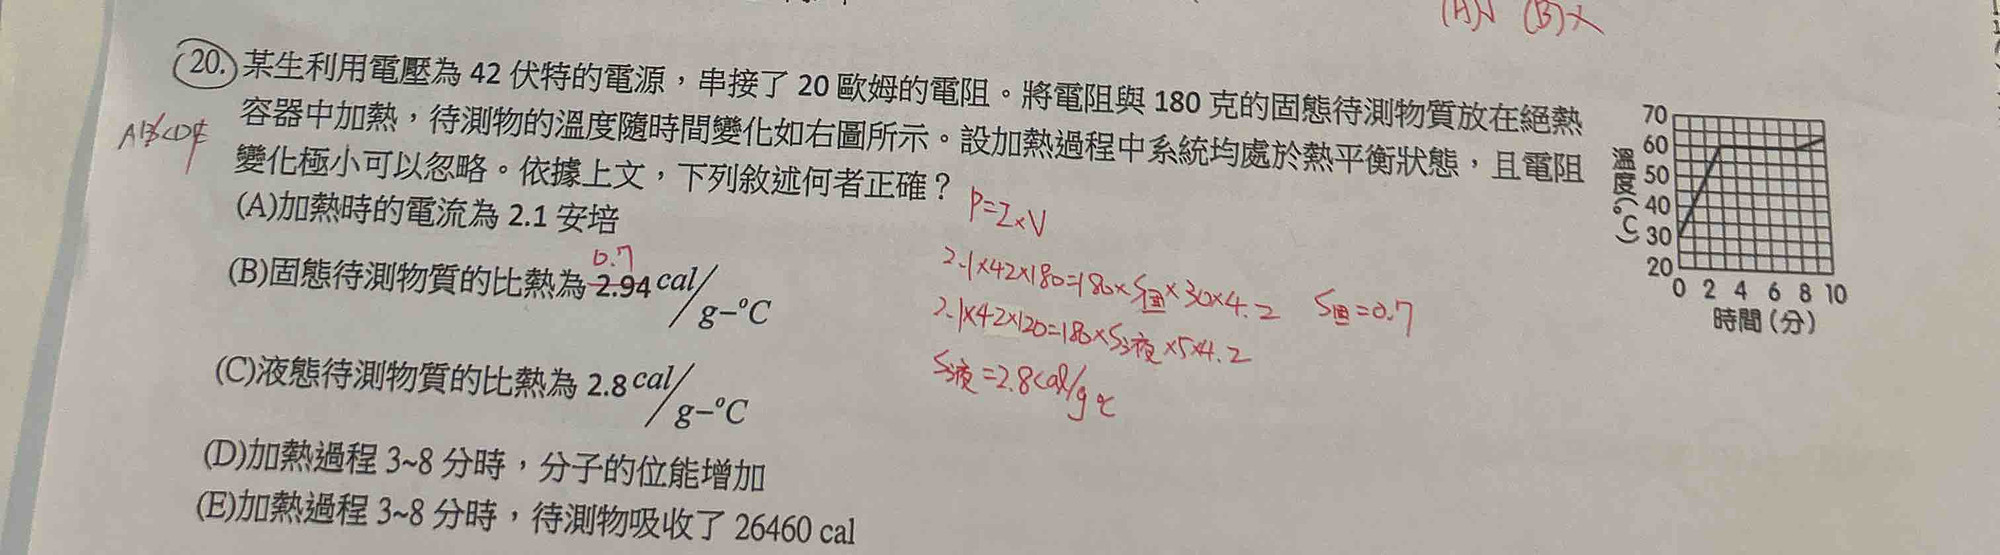 (A)√ (B)×
20. 某生利用電壓為 42 伏特的電源，串接了 20 歐姆的電阻。將電阻與 180 克的固態待測物質放在絕熱
容器中加熱，待測物的溫度隨時間變化如右圖所示。設加熱過程中系統均處於熱平衡狀態，且電阻
變化極小可以忽略。依據上文，下列敘述何者正確？
P=I×V
(A)加熱時的電流為 2.1 安培
0.7
(B)固態待測物質的比熱為 2.94 cal/g-°C
2.1×42×180=180×S固×30×4.2 S固=0.7
2.1×42×120=180×S液×5×4.2
S液=2.8cal/g℃
(C)液態待測物質的比熱為 2.8 cal/g-°C
(D)加熱過程 3~8 分時，分子的位能增加
(E)加熱過程 3~8 分時，待測物吸收了 26460 cal
溫度(°C)
70
60
50
40
30
20
0 2 4 6 8 10
時間(分)